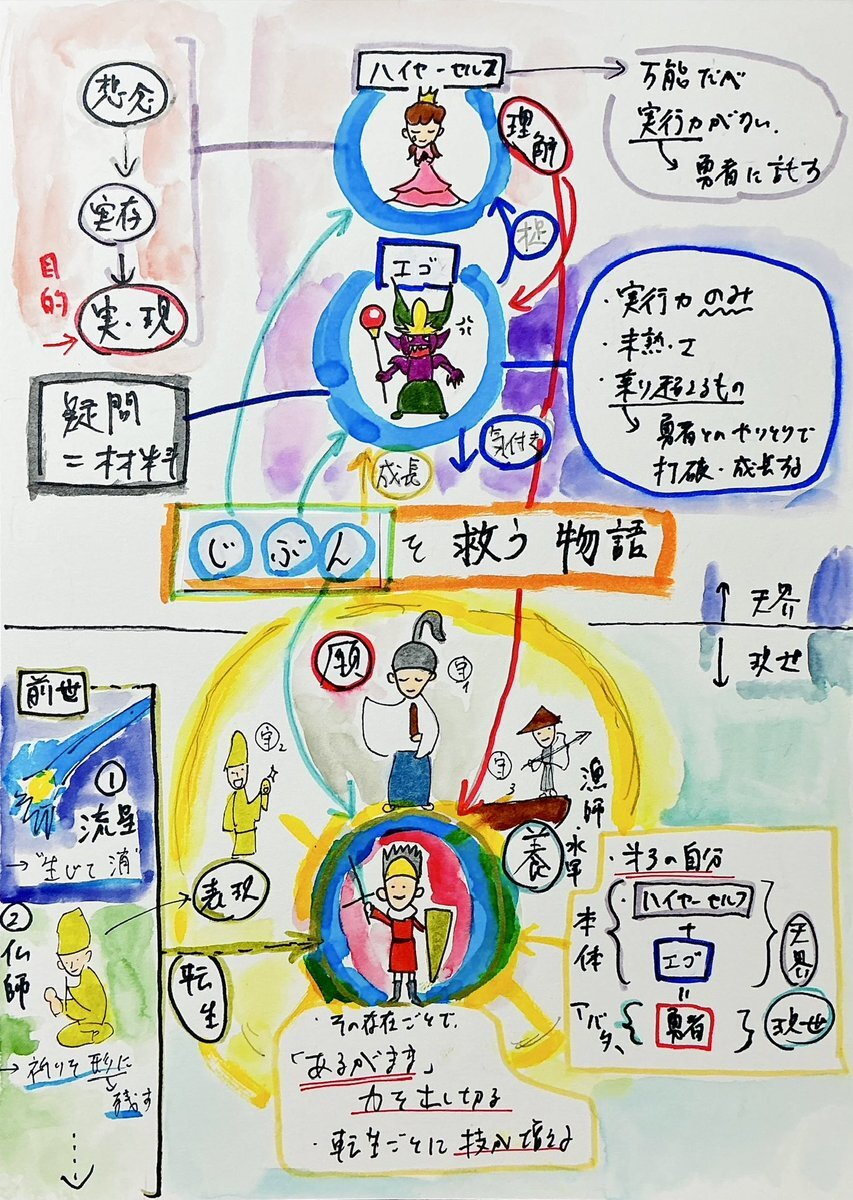 想念
実存
目的
実・現
ハイヤーセルフ
理解
万能だべ
実行力がない。
勇者に託す
エゴ
・実行力のみ
・未熟・さ
・乗り越えるもの
勇者とのやりとりで
打破・成長する
疑問
=材料
成長
気付き
じぶんを救う物語
↑天界
↓現せ
前世
①
流星
→"生じて消"
②
仏師
→祈りを形に
残す
願
守1
守2
守3
漁師・水軍
養
表現
転生
・その存在ごとで、
「あるがまま」
力を出し切る
・転生ごとに技が増える
の自分
本体
・ハイヤーセルフ
+
エゴ
=
天界
アバター
勇者
現世